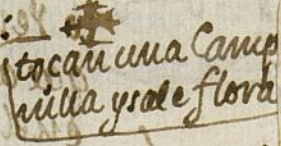 tocan una Camp
nilla ysale flora